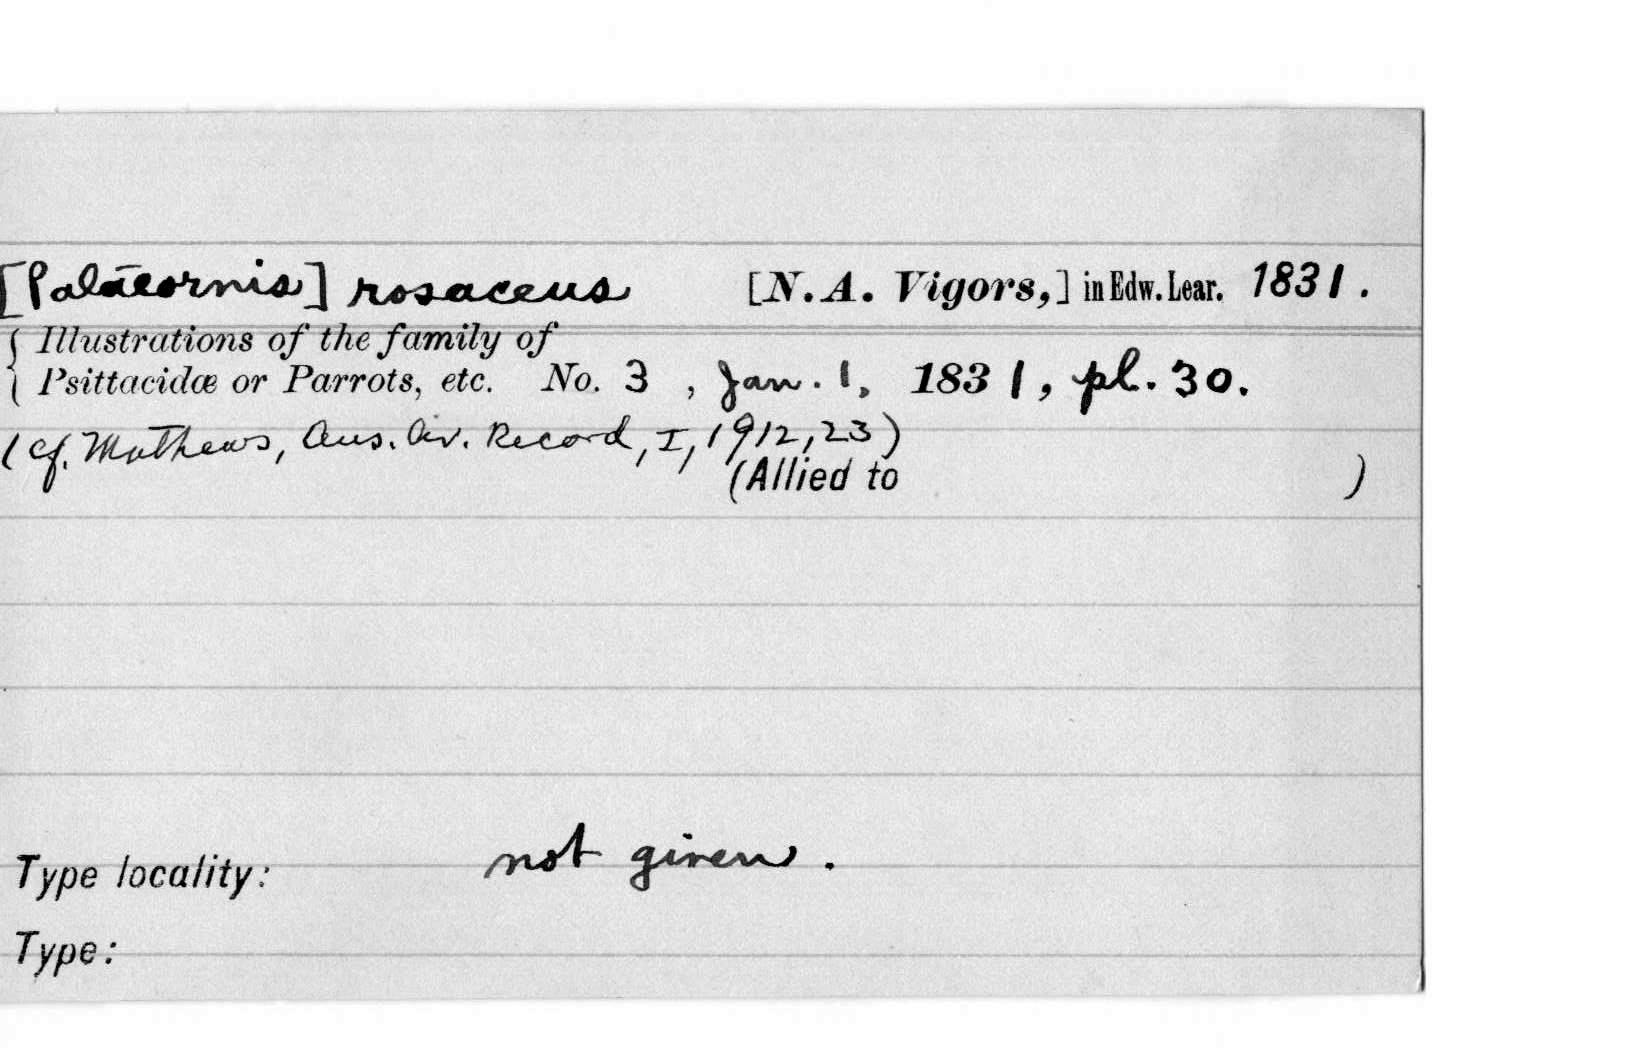 [Palaeornis] rosaceus [N. A. Vigors,] in Edw. Lear. 1831.
Illustrations of the family of
Psittacidæ or Parrots, etc. No. 3, Jan. 1, 1831, pl. 30.
(cf. Mathews, Aus. Av. Record, I, 1912, 23)
(Allied to )
Type locality: not given.
Type: